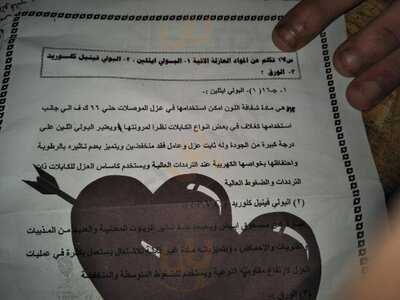 س١٧ تكلم عن المواد العازلة الاتية ١- البولي ايثلين ، ٢- البولي فينيل كلوريد
٣- الورق ؟
ج١٦(١) - البولي ايثلين :
هي مادة شفافة اللون امكن استخدامها في عزل الموصلات حتى ٦٦ ك.ف الي جانب
استخدامها كغلاف في بعض انواع الكابلات نظرا لمرونتها ويعتبر البولي اثلين على
درجة كبيرة من الجودة وله ثابت عزل وعامل فقد منخفضين ويتميز بعدم تاثيره بالرطوبة
واحتفاظها بخواصها الكهربية عند الترددات العالية ويستخدم كأساس العزل للكابلات ذات
الترددات والضغوط العالية
(٢) البولي فينيل كلوريد
مسحوق ابيض تاثير الزيوت المعدنية والعديد من المذيبات
والقلويات والاحماض ، غير قابلة للاشتعال يستعمل بكثرة في عمليات
العزل لارتفاع مقاومته النوعية ويستخدم للضغوط المتوسطة والمنخفضة